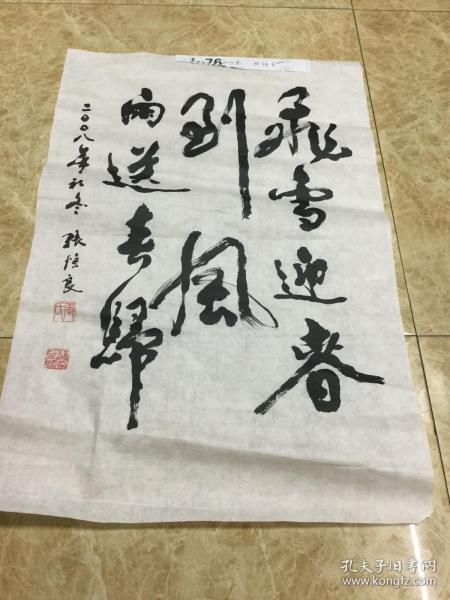 飛雪迎春
到風
雨送春歸
二〇〇八年初冬 張
76
孔夫子旧书网
www.kongfz.com